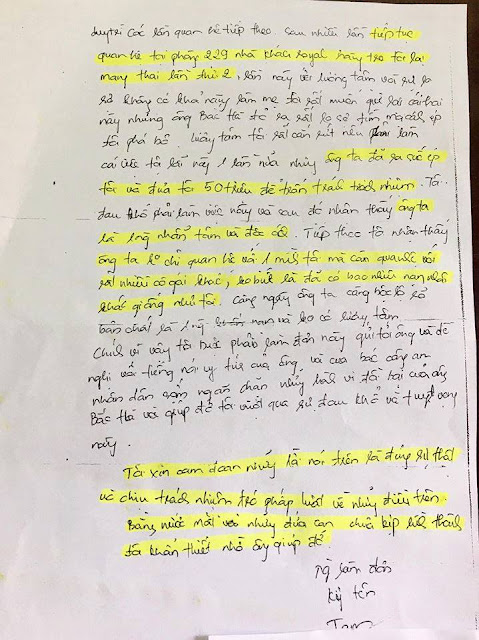 duy trì các lần quan hệ tiếp theo. Sau nhiều lần tiếp tục
quan hệ tại phòng 229 nhà khách royal này tôi lại
mang thai lần thứ 2, lần này với lương tâm và sự lo
sợ không có khả năng làm mẹ tôi rất muốn giữ lại cái thai
này nhưng ông Bắc Hà đã ra sức lo sợ tìm mọi cách ép
tôi phá bỏ. Lương tâm tôi rất cắn rứt nếu phải làm
cái việc tội lỗi này 1 lần nữa nhưng ông ta đã ra sức ép
tôi và đưa tôi 50 triệu để trốn tránh trách nhiệm. Tôi
đau khổ phải làm việc này và sau đó nhận thấy ông ta
là 1 ng nhẫn tâm và độc ác. Tiếp theo tôi nhận thấy
ông ta ko chỉ quan hệ với 1 mình tôi mà còn quan hệ với
rất nhiều cô gái khác, ko biết là đã có bao nhiêu nạn nhân
khác giống như tôi. Càng ngày ông ta càng bộc lộ rõ
bản chất là 1 ng nạn và ko có lương tâm
Chính vì vậy tôi buộc phải làm đơn này gửi tới ông và đề
nghị với tiếng nói uy tín của ông và của bác công an
nhân dân ngăn chặn những hành vi đồi bại của ông
Bắc Hà và giúp đỡ tôi vượt qua sự đau khổ và tuyệt vọng
này.
Tôi xin cam đoan những lời nói trên là đúng sự thật
và chịu trách nhiệm trc pháp luật về những điều trên.
Bằng nước mắt và những đứa con chưa kịp hình thành
tôi khẩn thiết nhờ ông giúp đỡ.
Ng làm đơn
Ký tên